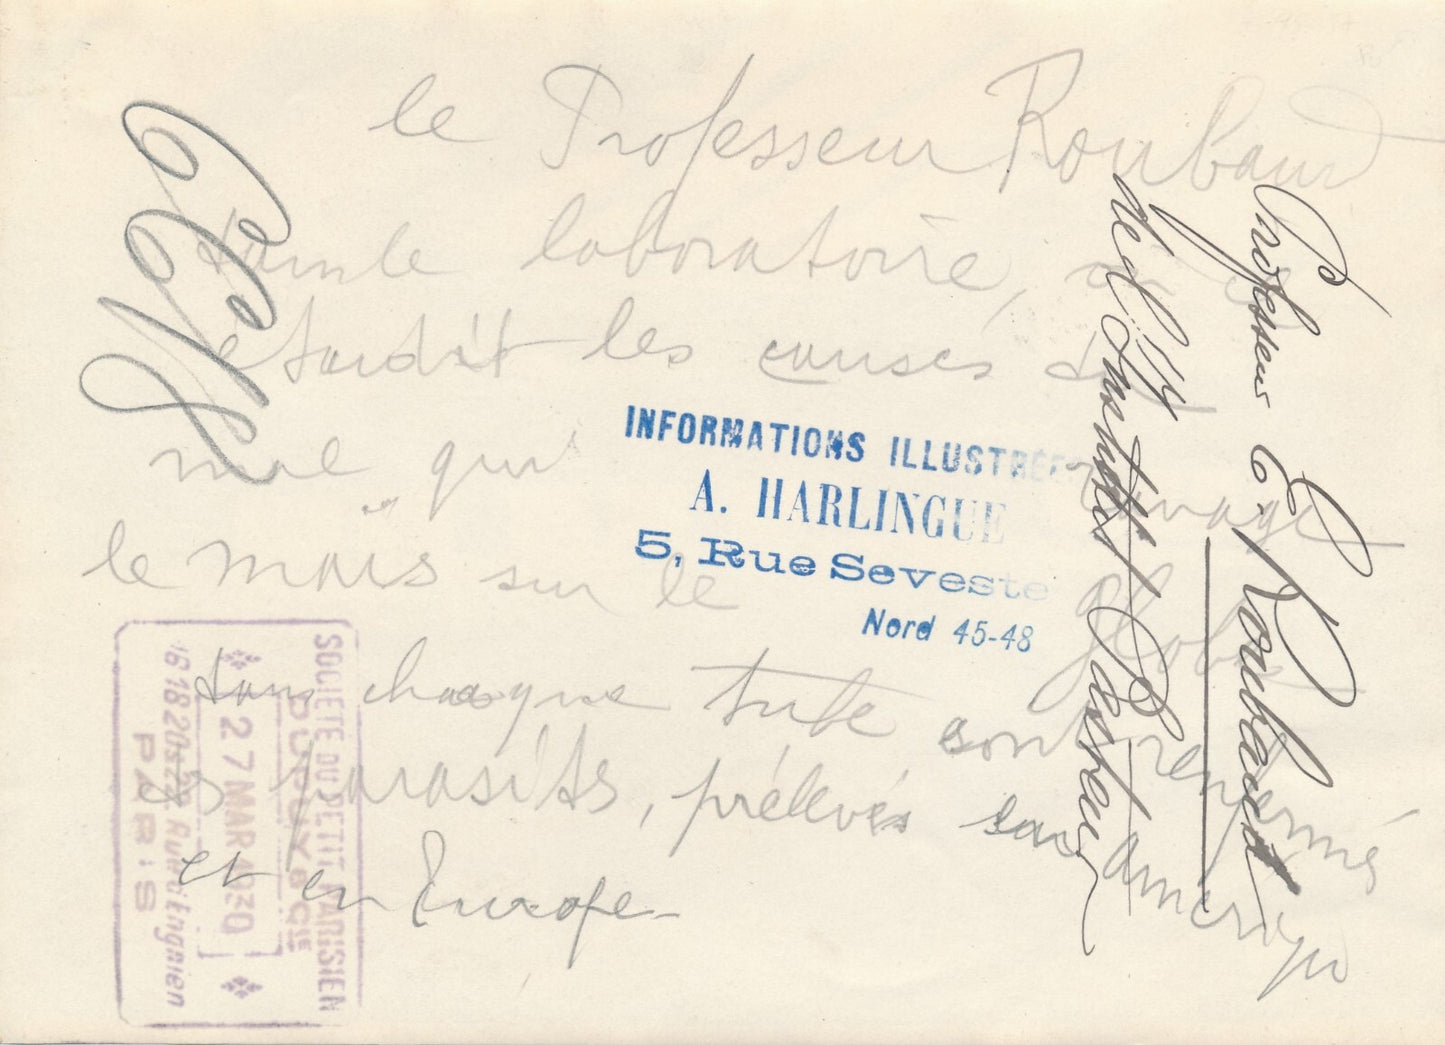 le Professeur Roubaud
dans le laboratoire, où
étudit les causes du
mal qui ravage
le maïs sur le globe
dans chaque tube son renfermé
parasits, prélevés en amérique
et en Europe
INFORMATIONS ILLUSTRÉES
A. HARLINGUE
5, Rue Seveste
Nord 45-48
Professeur E. Roubaud
de l'Institut Pasteur
SOCIÉTÉ DU PETIT PARISIEN
DUPUY & CIE
27 MAR 1930
16 18 20 Rue d'Enghien
PARIS